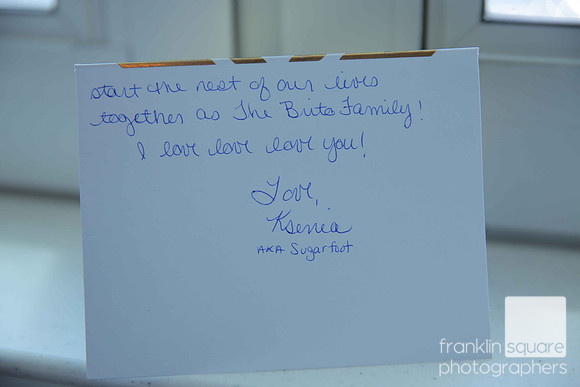 start the rest of our lives
together as The Brito Family!
I love love love you!
Love,
Ksenia
AKA Sugarfoot
franklin square
photographers